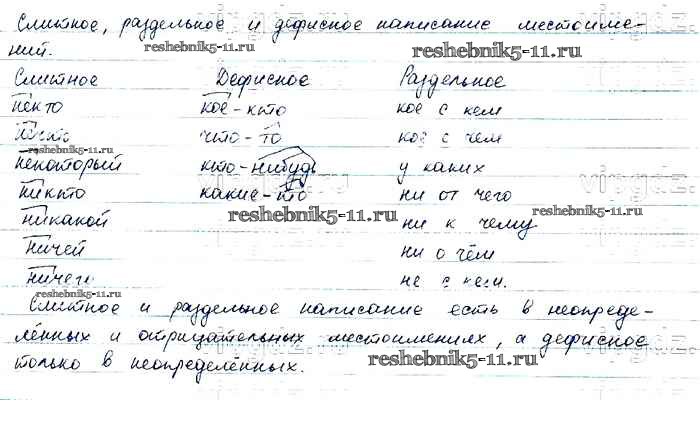 Слитное, раздельное и дефисное написание местоиме-
ний.
reshebnik5-11.ru
reshebnik5-11.ru
Слитное Дефисное Раздельное
некто кое-кто кое с кем
что-то кое с чем
reshebnik5-11.ru
некоторый кто-нибудь у каких
никто какие-то ни от чего
никакой ни к чему
reshebnik5-11.ru
reshebnik5-11.ru
ничей ни о чём
ничего не с кем.
reshebnik5-11.ru
Слитное и раздельное написание есть в неопреде-
лённых и отрицательных местоимениях, а дефисное
только в неопределённых.
reshebnik5-11.ru